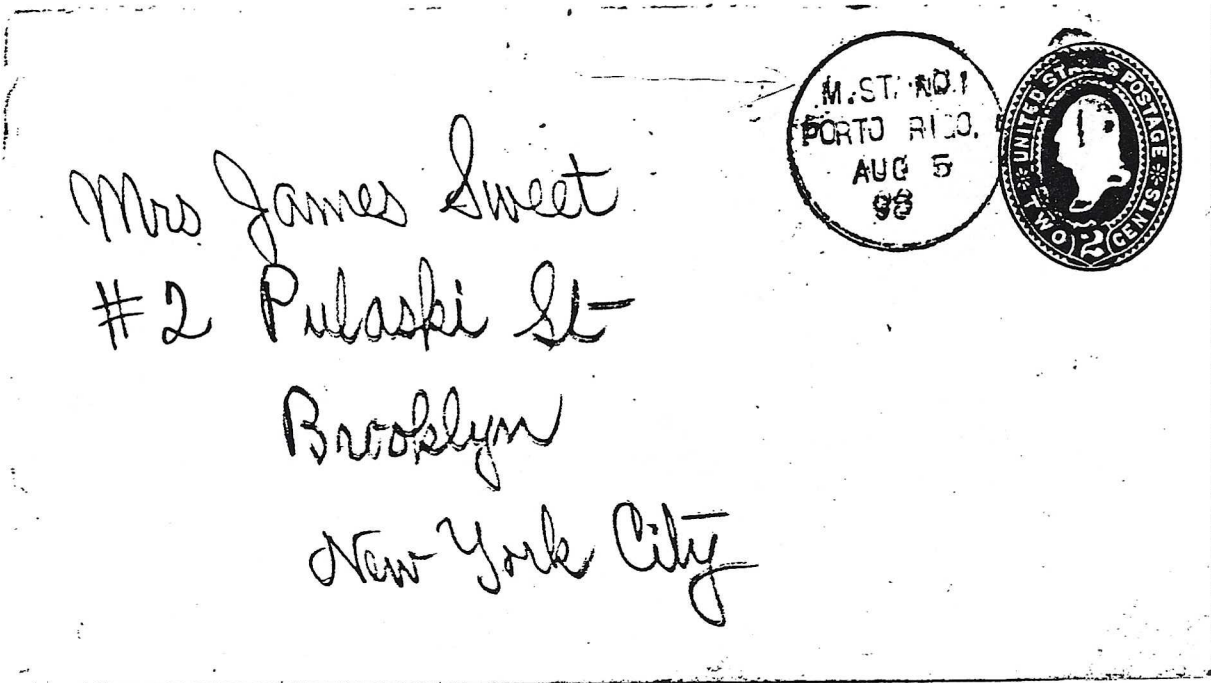 M. ST. NO. 1
PORTO RICO.
AUG 5
98
UNITED STATES POSTAGE
TWO 2 CENTS
Mrs James Sweet
#2 Pulaski St
Brooklyn
New York City